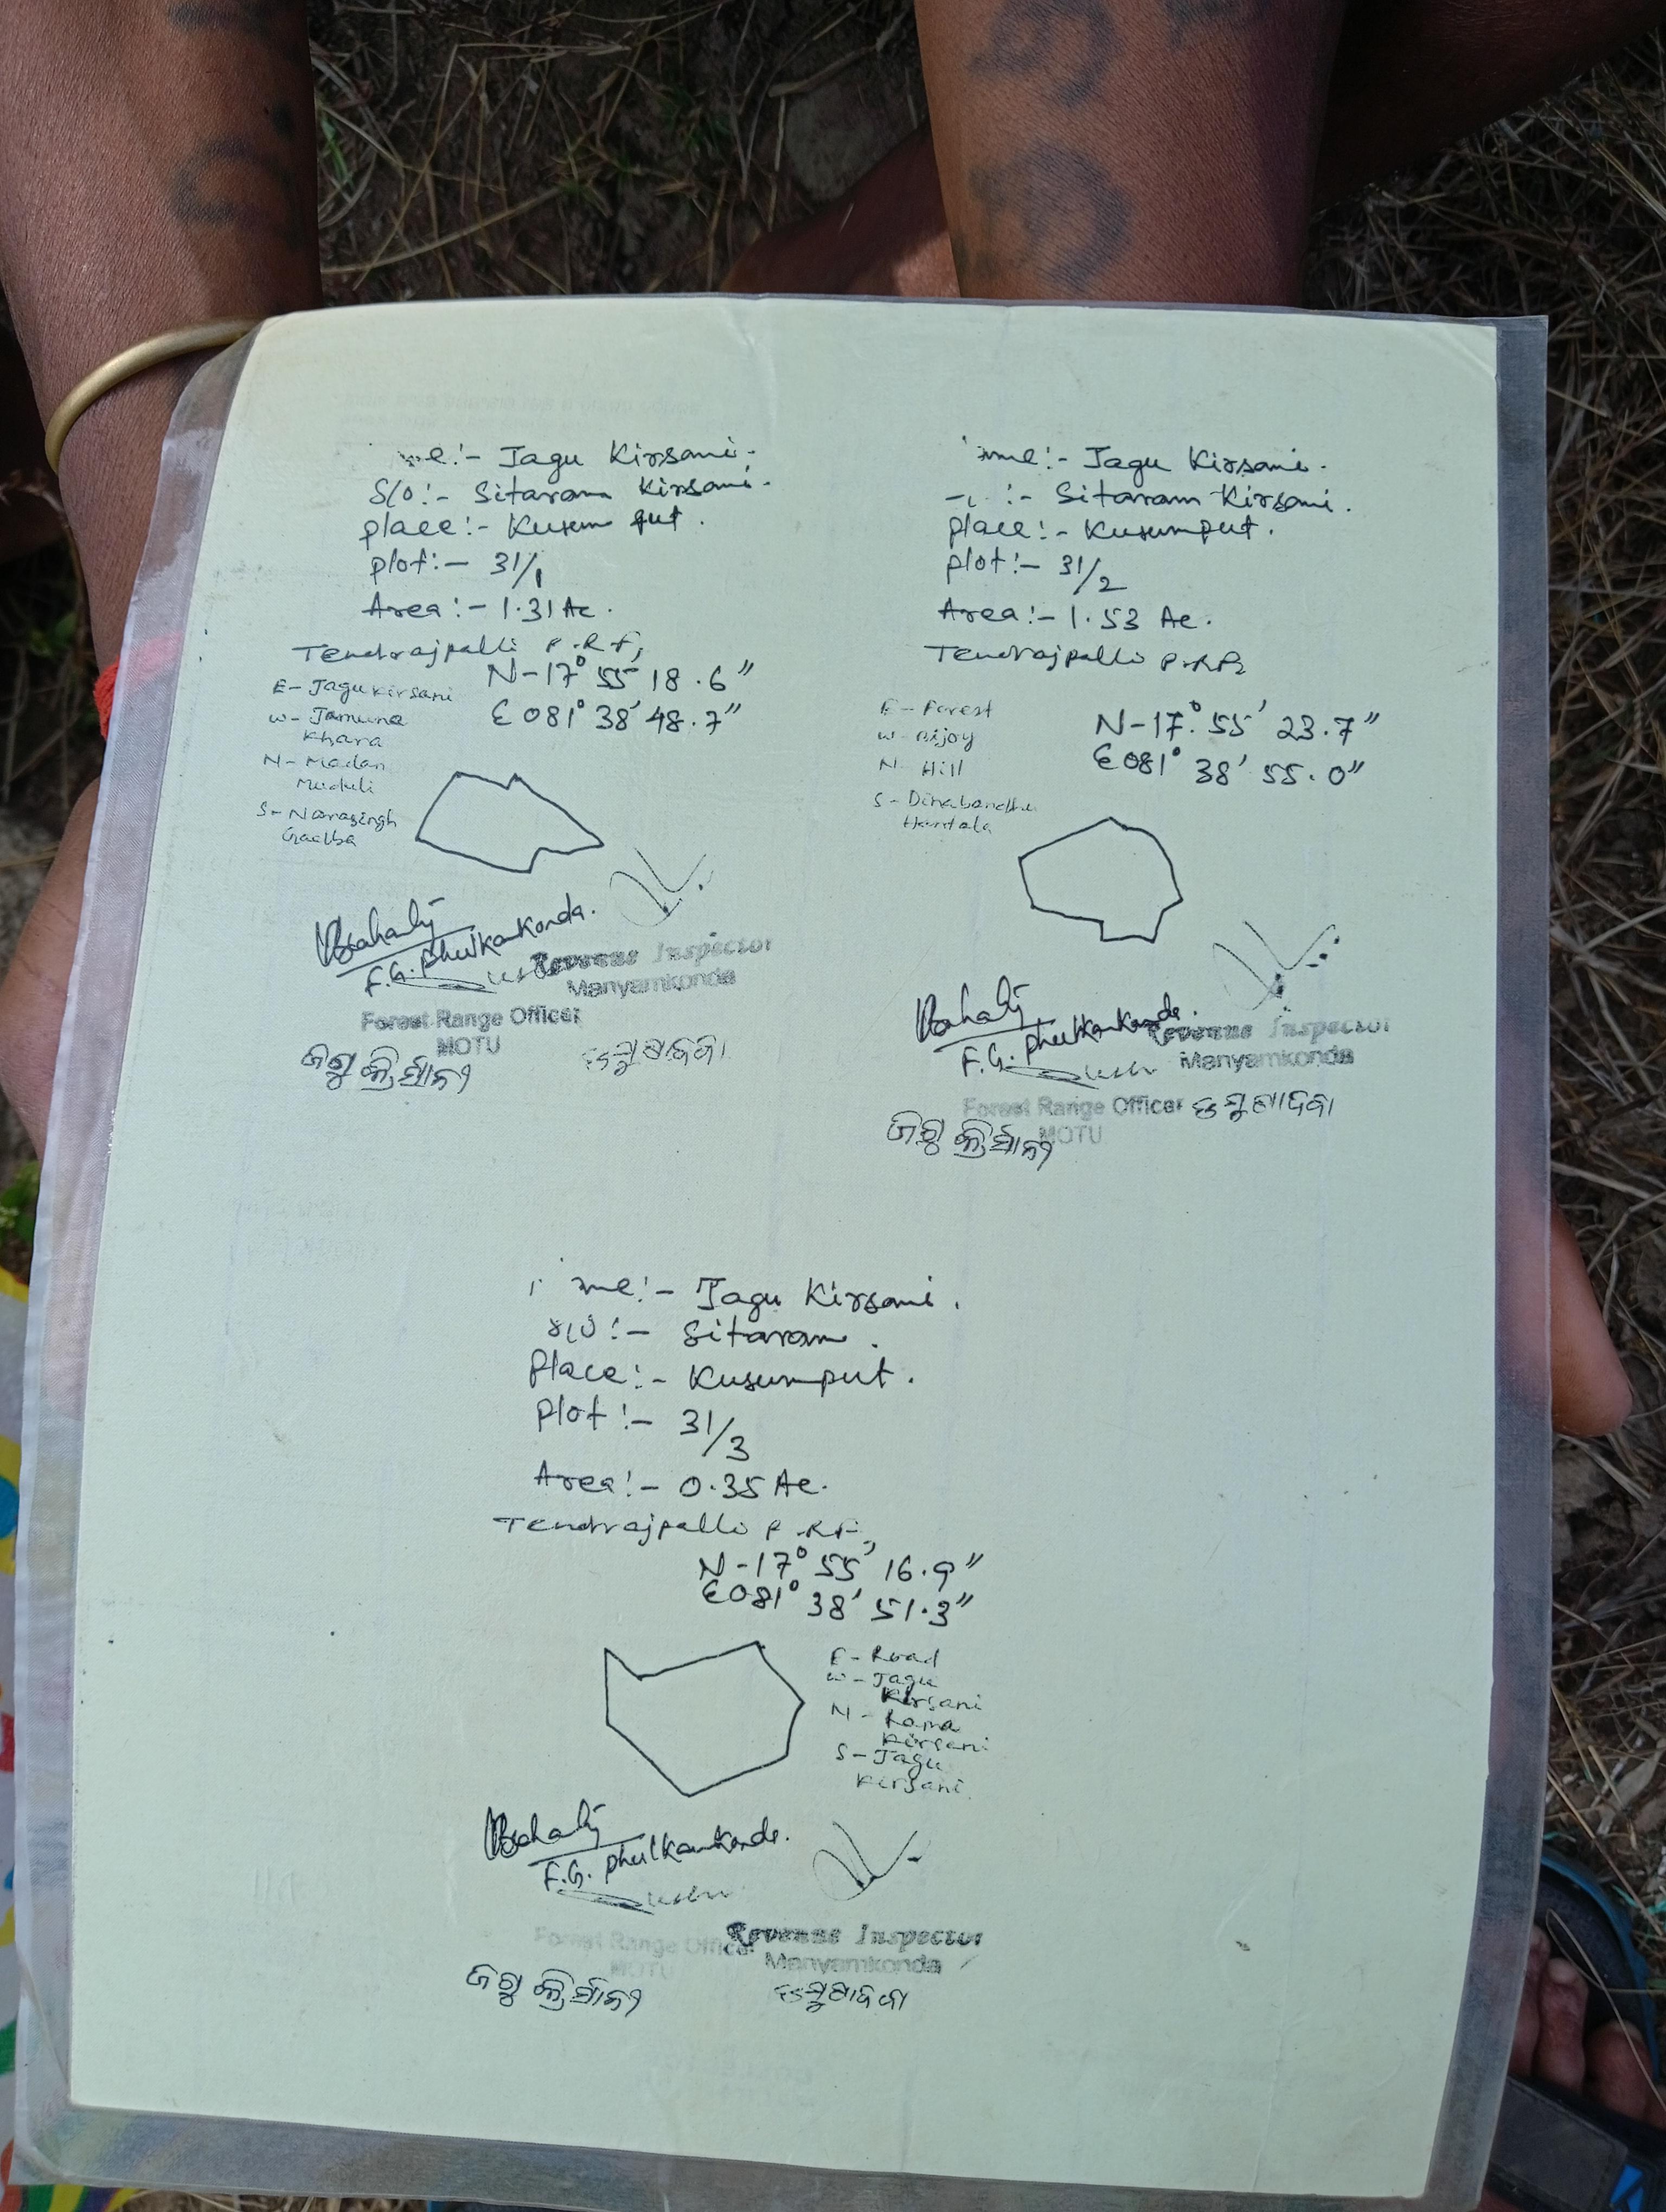 Jagu Kirsani.
S/O :- Sitaram Kirsani.
place :- Kusum put.
plot :- 31/1
Area :- 1.31 Ac.
Tendrajpalli P.R.F,
N-17° 55' 18.6"
E 081° 38' 48.7"
E- Jagu kirsani
W- Jamuna
Khara
N- Madan
Muduli
S- Narasingh
Gadba
F.G. Phulkankonda.
Revenue Inspector
Manyamkonda
Forest Range Officer
MOTU
ଜଗୁ କ୍ରିର୍ସାନୀ
Jagu Kirsani.
:- Sitaram Kirsani.
place :- Kusumput.
plot :- 31/2
Area :- 1.53 Ac.
Tendrajpalli P.RF,
E- Forest
W- Bijoy
N- Hill
S- Dinabandhu
Hantala
N-17° 55' 23.7"
E 081° 38' 55.0"
F.G. Phulkankonda.
Revenue Inspector
Manyamkonda
Forest Range Officer
MOTU
ଜଗୁ କ୍ରିର୍ସାନୀ
Jagu Kirsani.
S/O :- Sitaram.
Place :- Kusumput.
Plot :- 31/3
Area :- 0.35 Ac.
Tendrajpalli P.RF,
N-17° 55' 16.9"
E 081° 38' 51.3"
E- Road
W- Jagu
Kirsani
N- Rama
Kirsani
S- Jagu
Kirsani
F.G. Phulkankonda.
Revenue Inspector
Manyamkonda
Forest Range Officer
MOTU
ଜଗୁ କ୍ରିର୍ସାନୀ